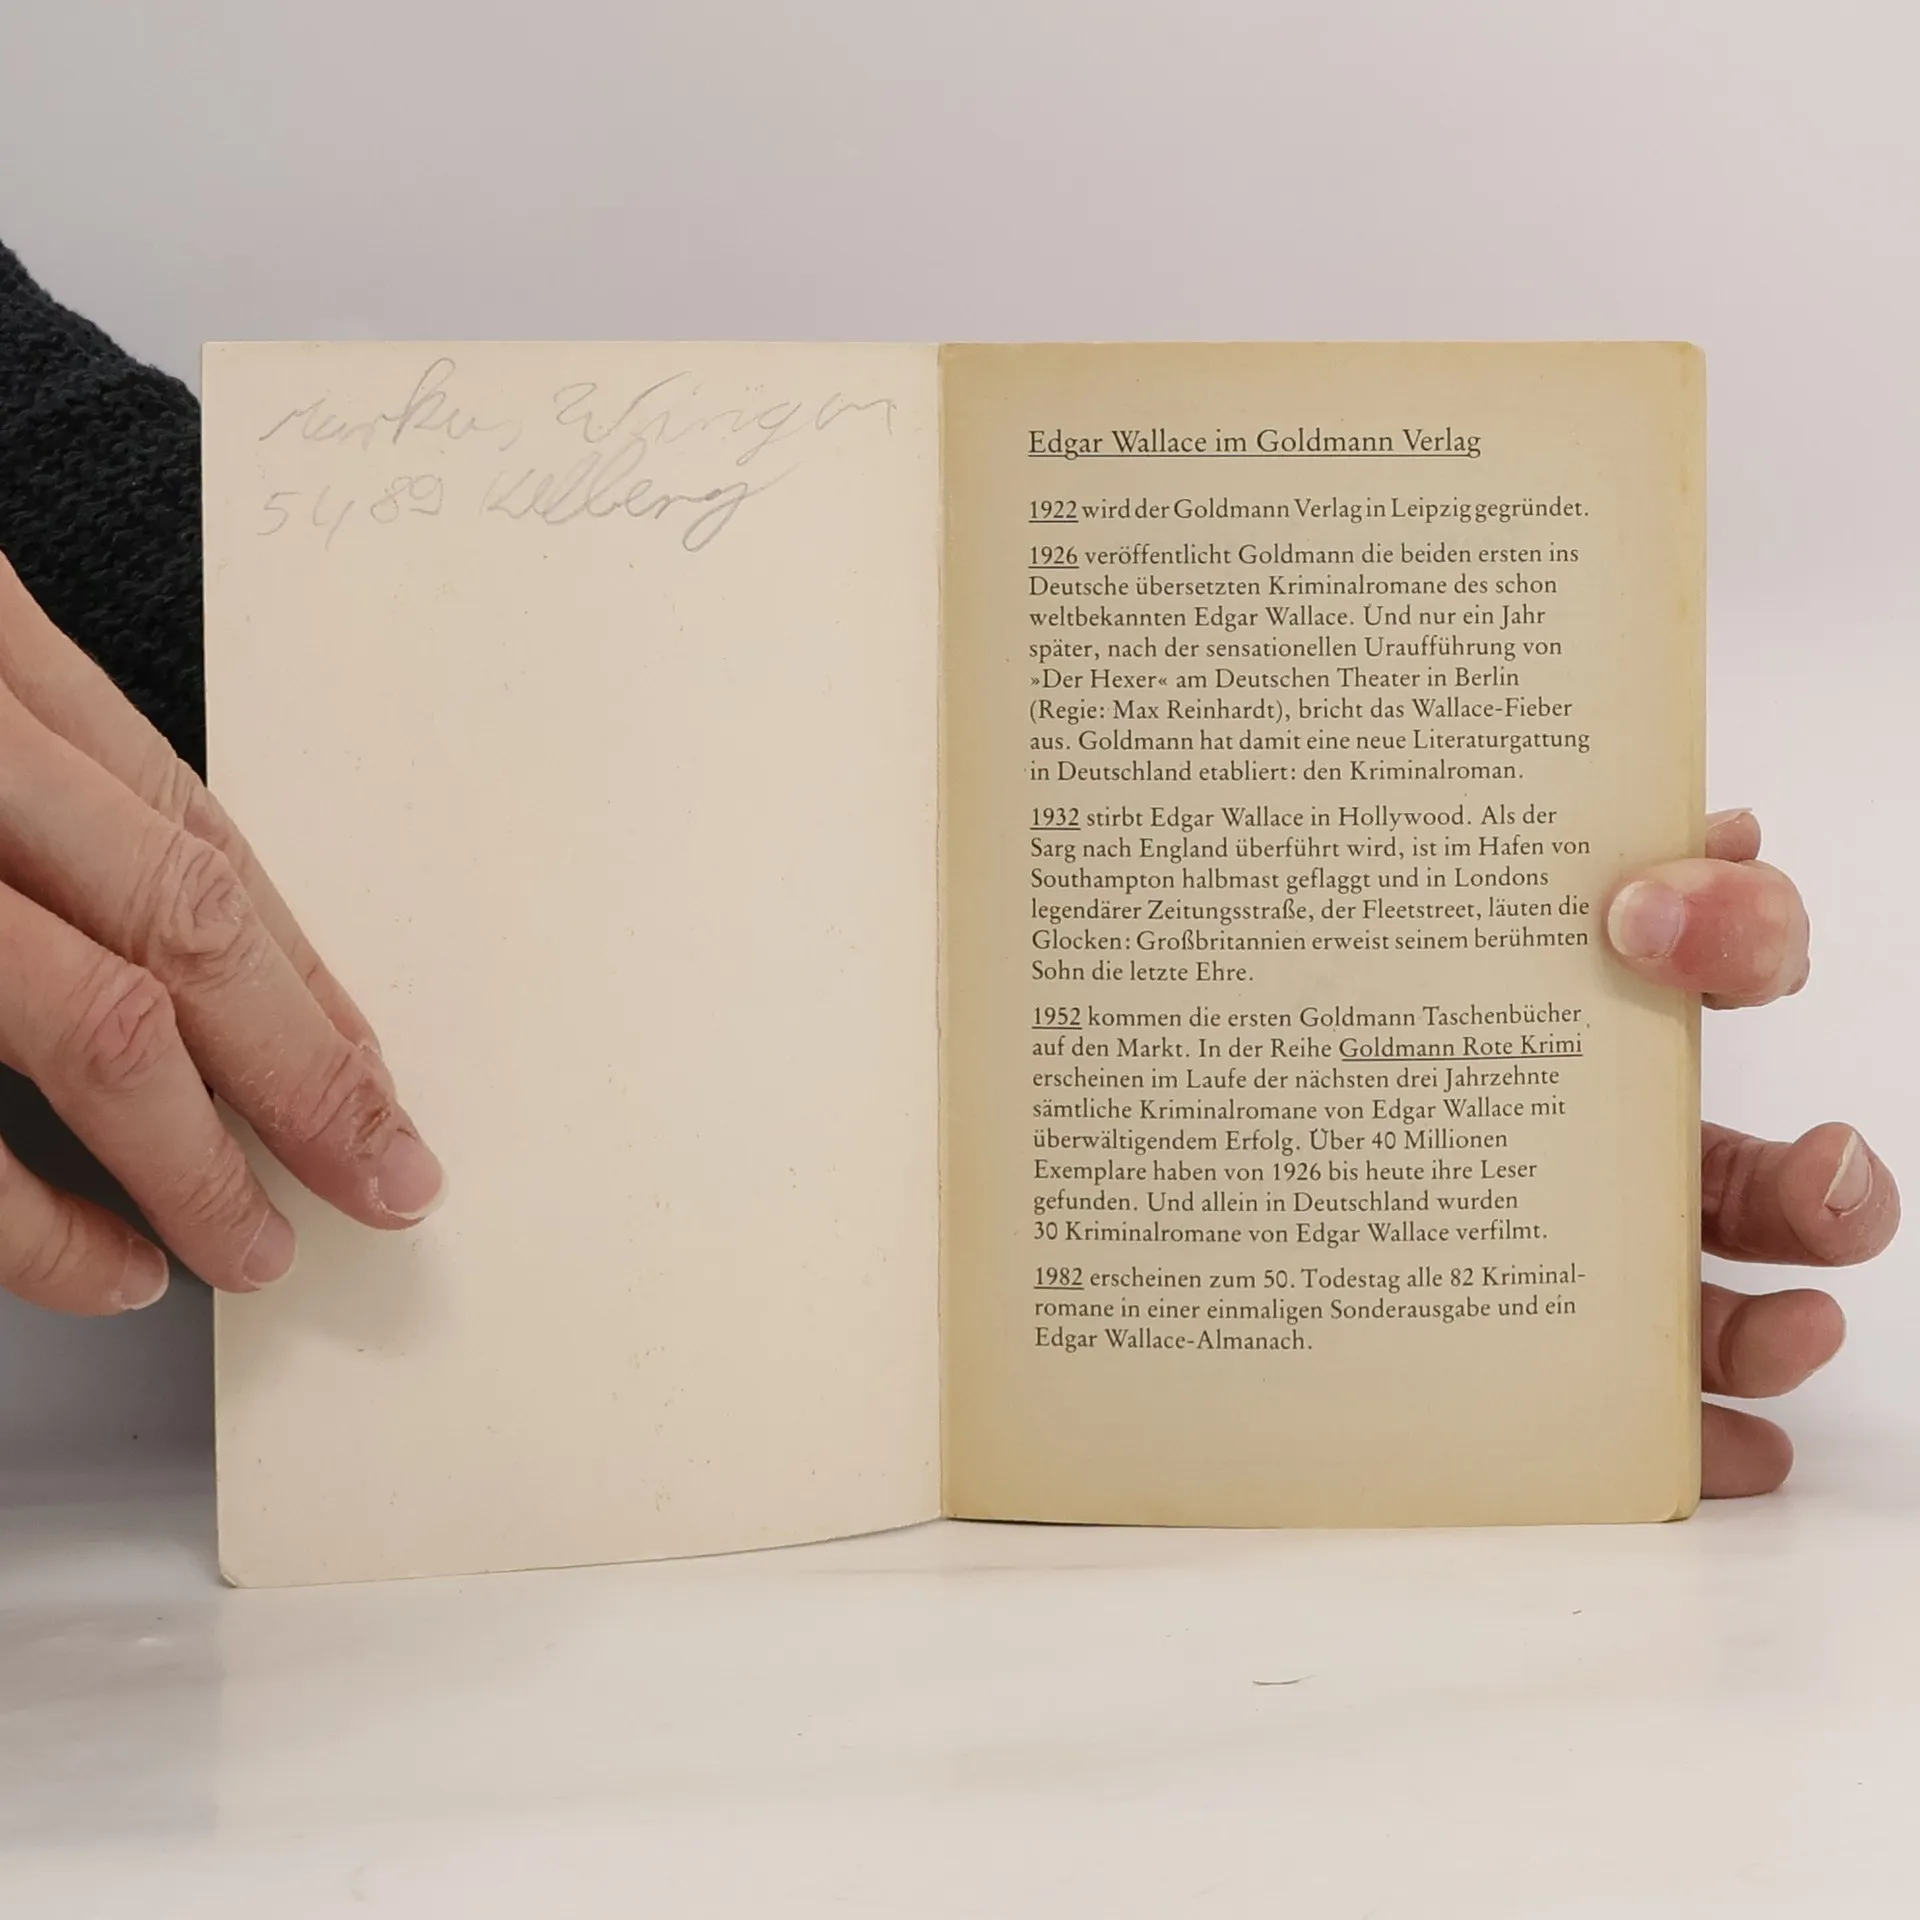 Markus
5489 Kelberg
Edgar Wallace im Goldmann Verlag
1922 wird der Goldmann Verlag in Leipzig gegründet.
1926 veröffentlicht Goldmann die beiden ersten ins
Deutsche übersetzten Kriminalromane des schon
weltbekannten Edgar Wallace. Und nur ein Jahr
später, nach der sensationellen Uraufführung von
»Der Hexer« am Deutschen Theater in Berlin
(Regie: Max Reinhardt), bricht das Wallace-Fieber
aus. Goldmann hat damit eine neue Literaturgattung
in Deutschland etabliert: den Kriminalroman.
1932 stirbt Edgar Wallace in Hollywood. Als der
Sarg nach England überführt wird, ist im Hafen von
Southampton halbmast geflaggt und in Londons
legendärer Zeitungsstraße, der Fleetstreet, läuten die
Glocken: Großbritannien erweist seinem berühmten
Sohn die letzte Ehre.
1952 kommen die ersten Goldmann Taschenbücher
auf den Markt. In der Reihe Goldmann Rote Krimi
erscheinen im Laufe der nächsten drei Jahrzehnte
sämtliche Kriminalromane von Edgar Wallace mit
überwältigendem Erfolg. Über 40 Millionen
Exemplare haben von 1926 bis heute ihre Leser
gefunden. Und allein in Deutschland wurden
30 Kriminalromane von Edgar Wallace verfilmt.
1982 erscheinen zum 50. Todestag alle 82 Kriminal-
romane in einer einmaligen Sonderausgabe und ein
Edgar Wallace-Almanach.